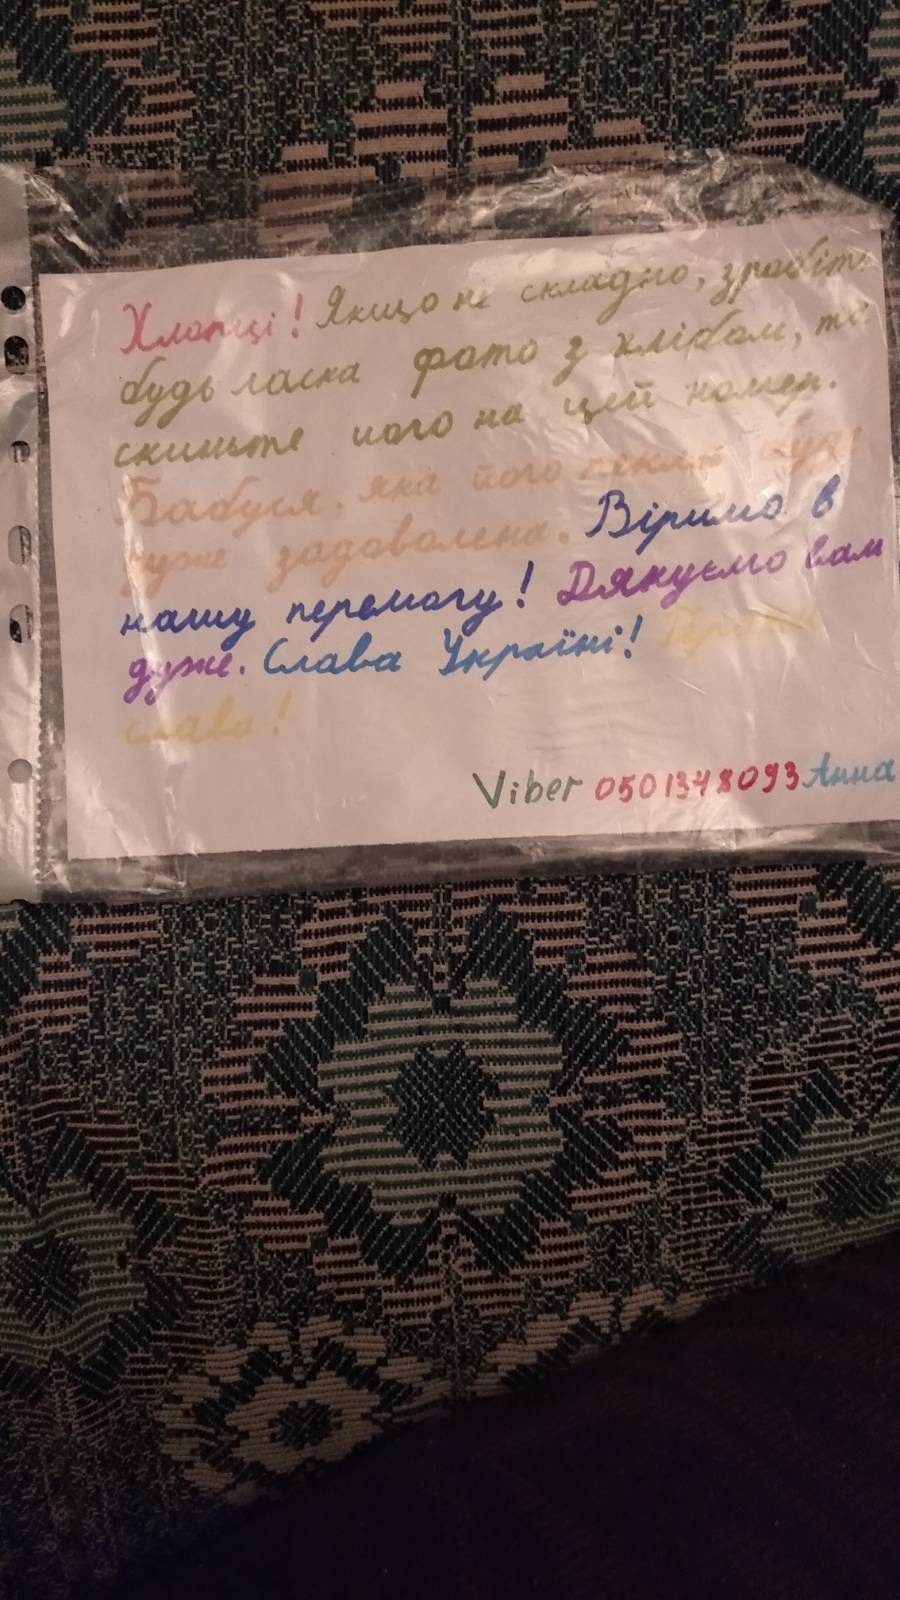 Хлопці! Якщо не складно, зробіть
будь ласка фото з хлібом, та
скиньте його на цей номер.
Бабуся, яка його пекла буде
дуже задоволена. Віримо в
нашу перемогу! Дякуємо вам
дуже. Слава Україні! Героям
слава!
Viber 0501348093 Анна